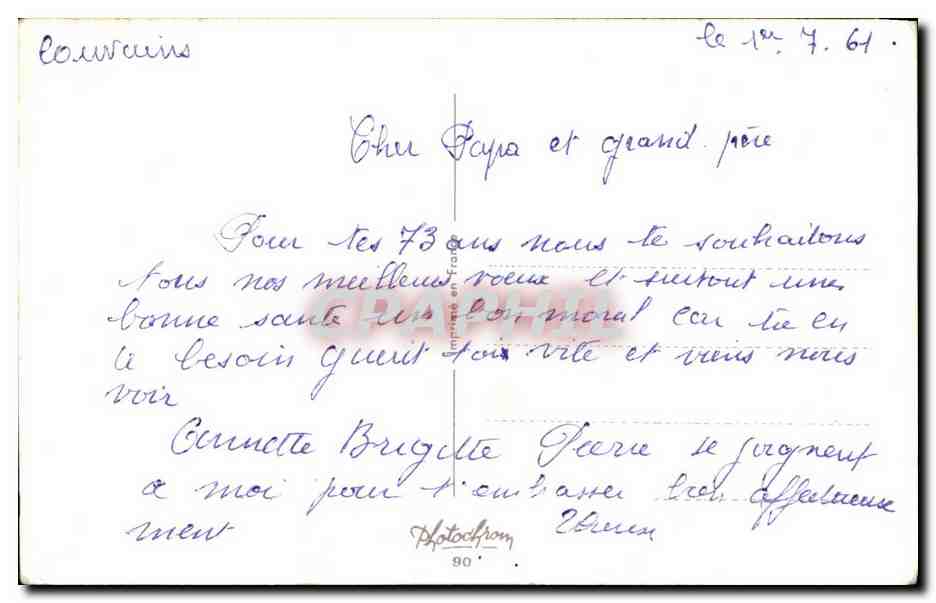 Couvains
le 1er. 7. 61.
Cher Papa et grand. père
Pour tes 73 ans nous te souhaitons
tous nos meilleurs voeux et surtout une
bonne santé un bon moral car tu en
a besoin guerit toi vite et viens nous
voir
Annette Brigitte Pierre se joignent
a moi pour t'embrasser bien affectueuse
ment
Imprimé en France
CPAPHIL
Photochrom
90